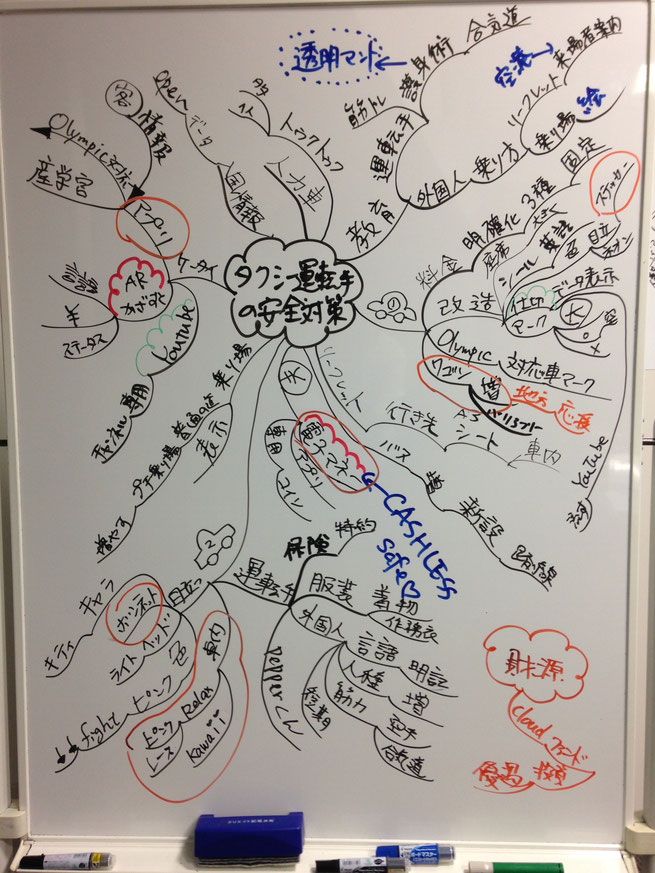 タクシー運転手
の安全対策
透明マント
護身術
合気道
筋トレ
運転手
教育
外国人
乗り方
乗り場
リーフレット
来場者案内
空港
絵
トゥクトゥク
人力車
国情報
Open データ
客
情報
Olympic対応
産学官
アプリ
ケータイ
AR
かざすと
¥
ステータス
Youtube
チャンネル
専用
料金
明確化
3種
固定
座席
シール
英語
色
目立つ
ステッカー
改造
仕切
データ表示
マーク
大
Olympic
対応車マーク
ワゴン
増
バリアフリー
地方
応援
Youtube
リーフレット
行き先
A3
シート
車内
バス
新設
路線
電子マネー
専用
アプリ
コイン
CASHLESS
safe
乗り場
表示
プチ乗り場
増やす
2
目立つ
ボンネット
キャラ
キティ
ライト
ヘッド
色
ピンク
fight
車内
Relax
ピンク
レース
Kawaii
運転手
保険
特約
服装
着物
作務衣
外国人
言語
明記
人種
増
筋力
空手
合気道
短期
Pepperくん
財源
Cloud
ファンド
優遇